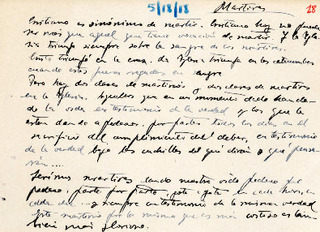 5/18/18 Martires 28
Cristiano es sinónimo de martir. Cristiano hoy no puede
ser más que aquel que tiene vocación de martir. Y la Igle-
sia triunfo siempre sobre la sangre de sus martires.
Cristo triunfó en la cruz. La Iglesia triunfa en los
cuando están regados en sangre
Pero hay dos clases de martirios y dos clases de martires
en la Iglesia. Aquellos que en un momento dado han de
de la vida en testimonio de la verdad y los que la
están dando a pedazos, por partes todos los días en el
sacrificio del cumplimiento del deber, en testimonio
de la verdad bajo los cuchillos del qué dirán o qué pensa-
rán....
Seremos martires dando nuestra vida pedazo por
pedazo, parte por parte, gota a gota en cada
y siempre en testimonio de la misma verdad
Este martirio por lo mismo que es más costoso es tam-
bién más glorioso.